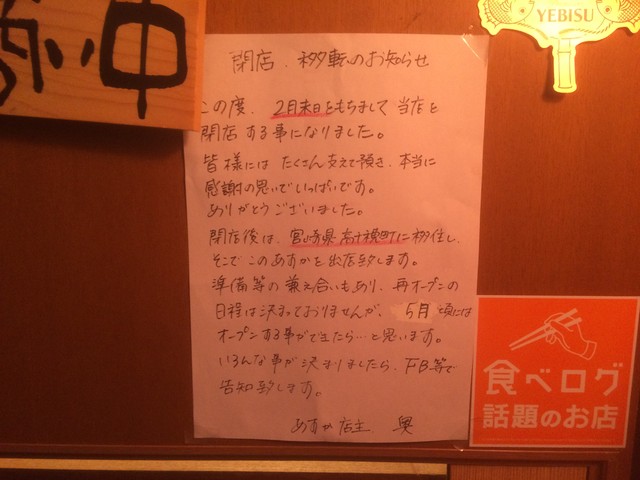 商い中
YEBISU
閉店、移転のお知らせ
この度、2月末日をもちまして当店を
閉店する事になりました。
皆様にはたくさん支えて頂き、本当に
感謝の思いでいっぱいです。
ありがとうございました。
閉店後は、宮崎県高千穂町に移住し、
そこでこのあすかを出店致します。
準備等の兼え合いもあり、再オープンの
日程は決まっておりませんが、5月頃には
オープンする事ができたら…と思います。
いろんな事が決まりましたら、FB等で
告知致します。
あすか店主 奥
食べログ
話題のお店